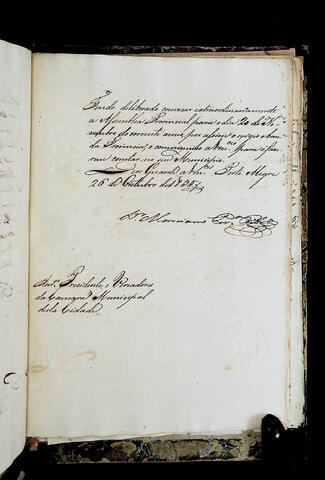 Tendo deliberado convocar extraordinariamente
a Assemblea Provincial para o dia 20 de No-
vembro do corrente anno por assim o exigir o bem
da Provincia; o communico a Vm.ces para o fa-
zerem constar no seu Municipio.
Deos Guarde a Vm.ces Porto Alegre
26 de Outubro de
Dr Marciano
Snr.es Presidente, e Vereadores
da Camara Municipal
desta Cidade